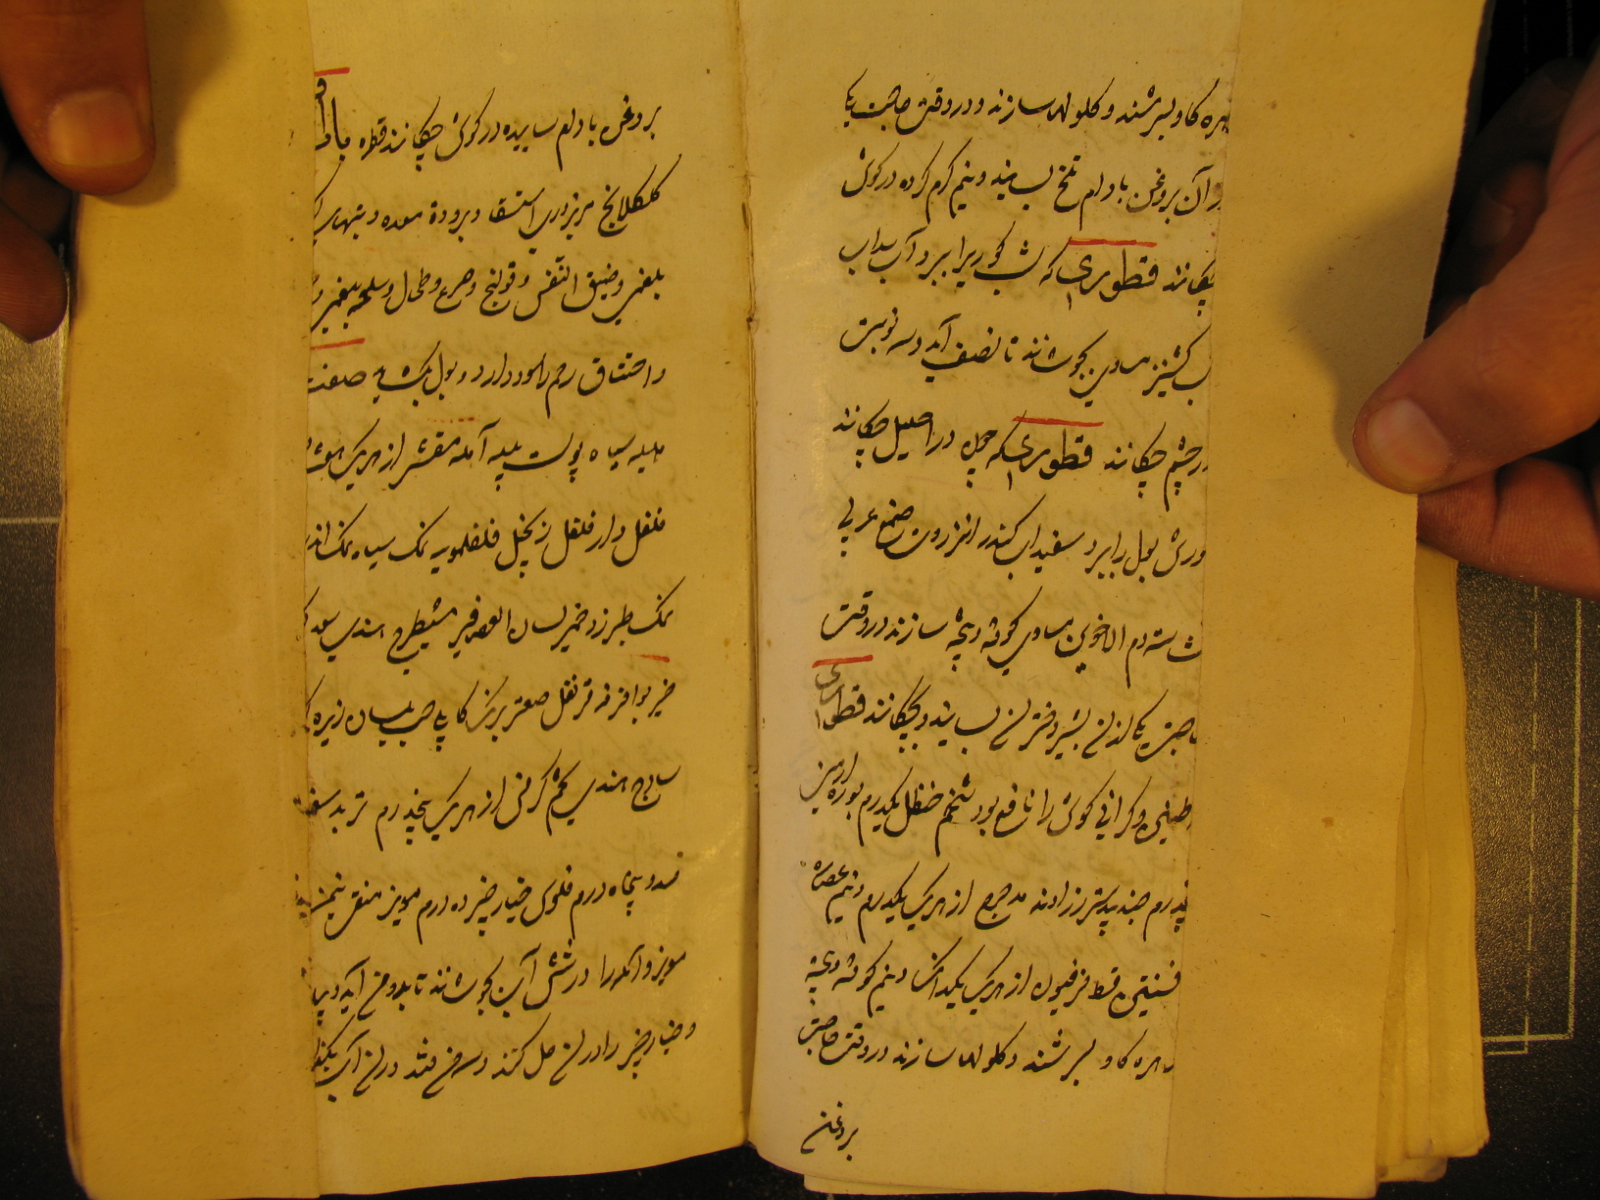 زهره گاو بسرشند و کلولها سازند و در وقت حاجت یکی
از آن بروغن بادام تلخ بسایند و نیم گرم کرده در گوش
بچکانند قطوری که شب کوری را ببرد آب سداب
آب کشنیز مساوی بجوشانند تا بنصف آید و سه نوبت
در چشم چکانند قطوری که چون در احلیل چکانند
سورش بول را ببرد سفیداب کندر انزروت صمغ عربی
نشاسته دم الاخوین مساوی کوفته و بیخته سازند در وقت
حاجت یکی از آن بشیر دختران بسایند و بچکانند قطوری
طنین و گرانی گوش را نافع بود شحم حنظل یکدرم بوره ارمنی
نیمدرم جندبیدستر زراوند مدحرج از هر یک یکدرم و نیم عصاره
افسنتین قسط فرفیون از هر یک یکدانگ و نیم کوفته و بیخته
بزهره گاو بسرشند و کلولها سازند در وقت حاجت
بروغن
بروغن بادام ساییده در گوش چکانند قطره
کلکلانج بزوری استسقا و برودة معده و تبهای
بلغمی و ضیق النفس و قولنج و صرع و طحال و سلعه بلغمی
و اختناق رحم را سود دارد و بول بگشاید صفت
هلیله سیاه پوست بلیله آمله مقشر از هر یک
فلفل دار فلفل زنجبیل فلفلمویه نمک سیاه نمک
نمک طبرزد خمیر لسان العصافیر شیطرج هندی سعد
خیربوا قرفه قرنفل صعتر برنگ کابلی حب بلسان زیره
سادج هندی تخم کرفس از هر یک پنجدرم تربد سفید
صد و پنجاه درم فلوس خیارچنبر ده درم مویز منقی
مویز و آمله را در شش من آب بجوشانند تا بدو من آید
و خیارچنبر را در آن حل کنند و من قند در آن آب